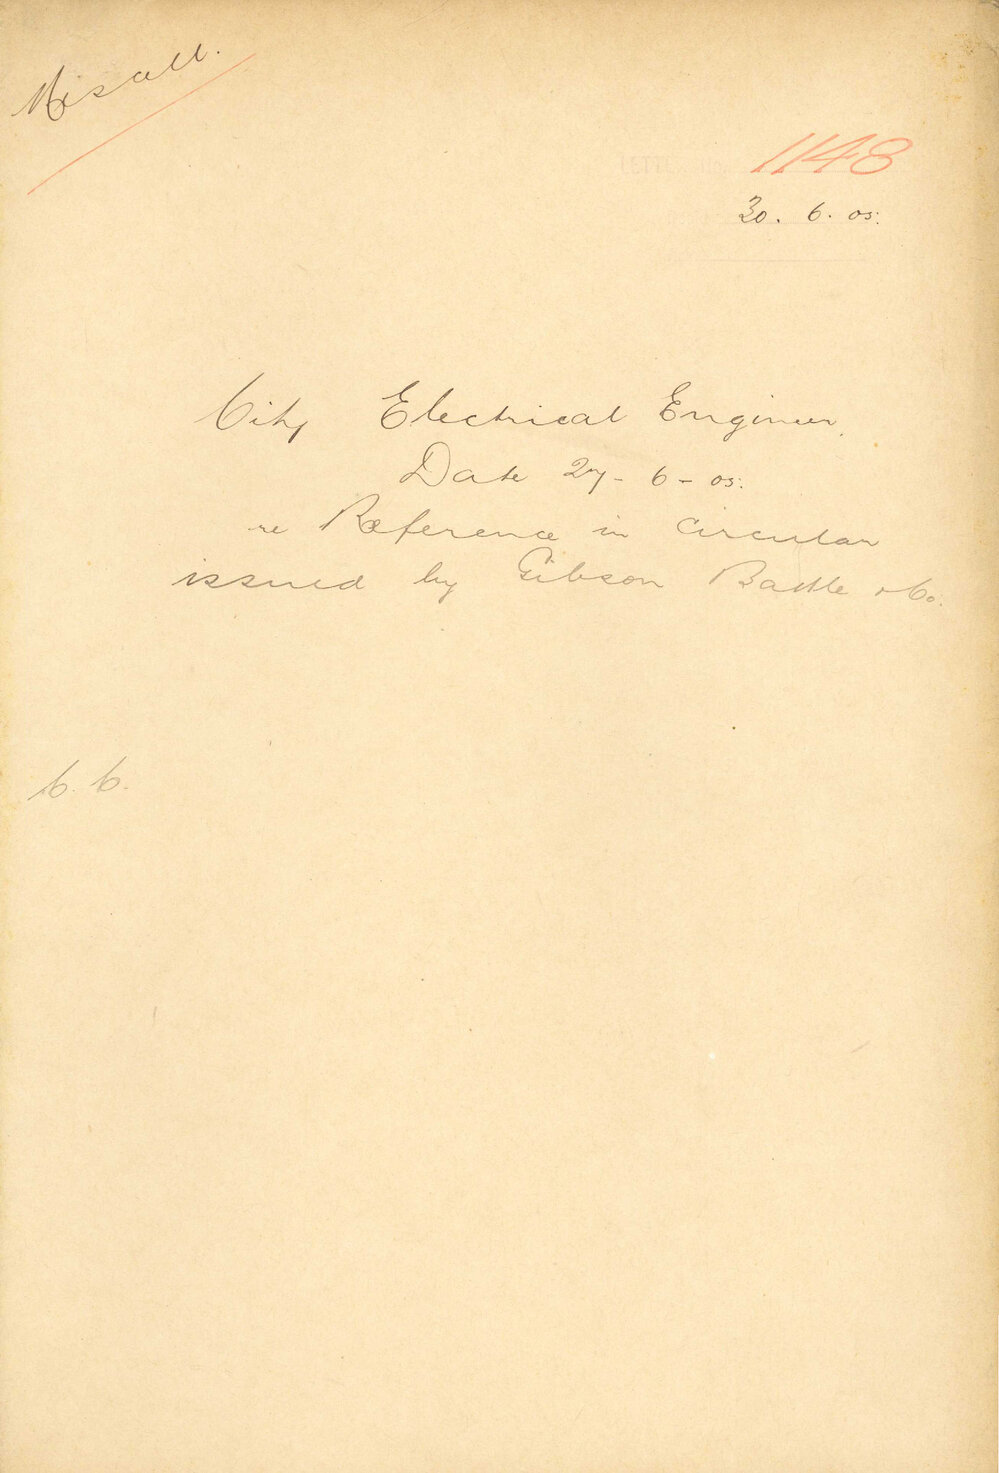 Miscell.
1148
30. 6. 05.
City Electrical Engineer.
Date 27-6-05.
re Reference in circular
issued by Gibson Battle & Co.
C. C.